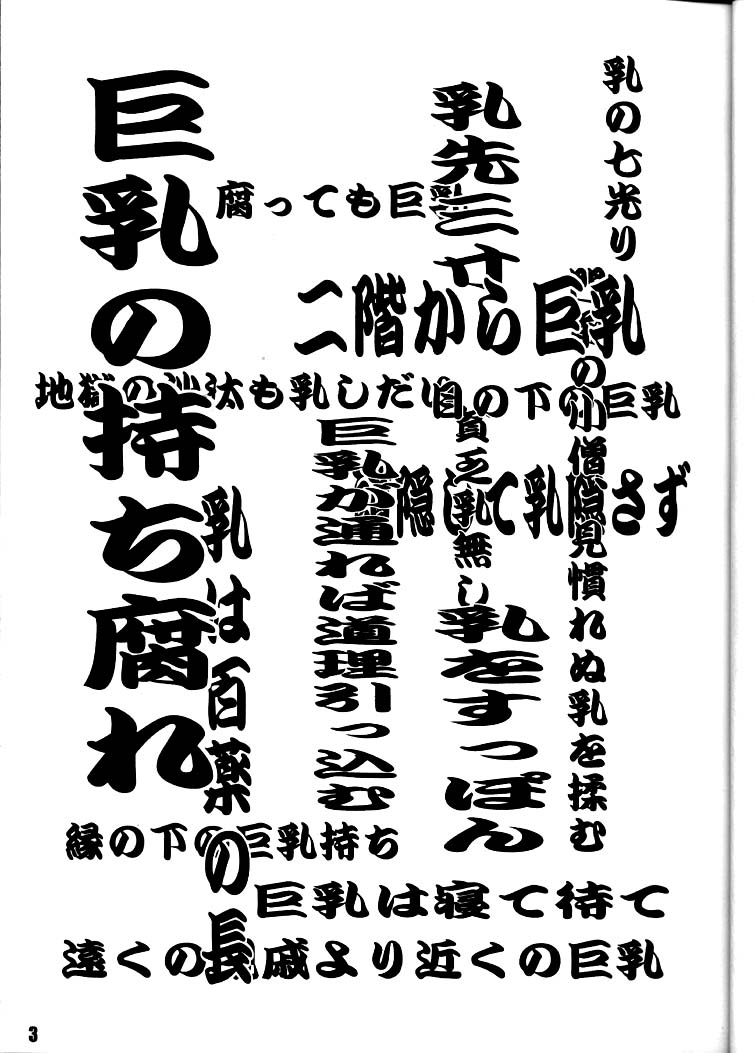 乳の七光り
乳先三寸
腐っても巨乳
二階から巨乳
巨乳の持ち腐れ
地獄の沙汰も乳しだい
目の下の巨乳
隠して乳隠さず
の小僧見慣れぬ乳を揉む
貧乏乳無し
巨乳が通れば道理引っ込む
乳をすっぽん
乳は百薬の長
縁の下の巨乳持ち
巨乳は寝て待て
遠くの親戚より近くの巨乳
3